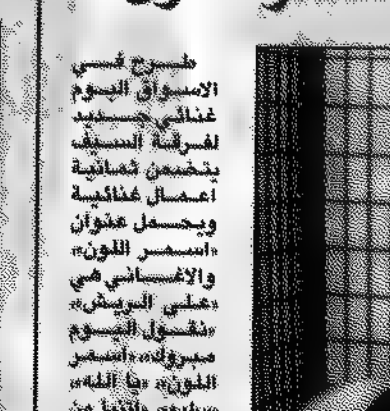 طرح في
الاسواق البوم
غنائي جديد
لفرقة السيف
يتضمن ثمانية
اعمال غنائية
ويحمل عنوان
«اسمر اللون»
والاغاني هي
«على الريش»،
«نقول اليوم
مبروك»، «اسمر
اللون»، «يا الله»